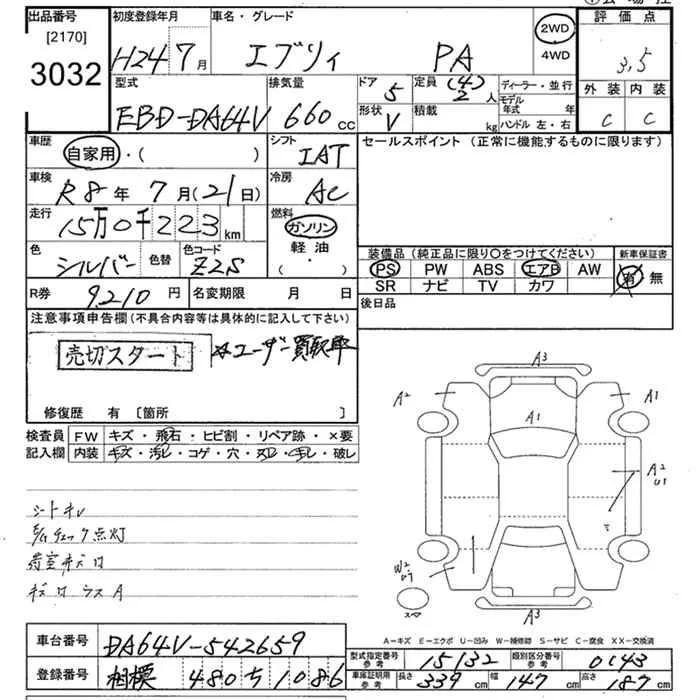 出品番号 初度登録年月 車名・グレード 2WD 4WD 評価点
[2170]
3032
H24 7月 エブリィ PA 3.5
型式 排気量 ドア 定員 ディーラー・並行 外装 内装
EBD-DA64V 660cc 5 (4) 2人 モデル年式 年 C C
形状 V 積載 kg ハンドル 左・右
車歴 自家用・( ) シフト IAT セールスポイント (正常に機能するものに限ります)
車検 R8年7月(21日) 冷房 AC
走行 15万0千223km 燃料 ガソリン 軽油 ( ・ )
色 シルバー 色替 色コード Z2S
装備品(純正品に限り○をつけてください) 新車保証書
PS PW ABS エアB AW 有・無
SR ナビ TV カワ
R券 9,210円 名変期限 月 日 後日品
注意事項申告欄(不具合内容等は具体的に記入して下さい)
売切スタート ☆ユーザー買取車
修復歴 有 〔箇所 〕
検査員 FW キズ・飛石・ヒビ割・リペア跡・×要
記入欄 内装 キズ・汚レ・コゲ・穴・スレ・チレ・破レ
シートキレ
点灯
A3
A2 A1
A1
A2
U1
W2
A3
A-キズ E-エクボ U-凹み W-補修跡 S-サビ C-腐食 XX-交換済
車台番号 DA64V-542659
登録番号 相模 480 ち 1086
型式指定番号 参考 15132 類別区分番号 参考 0143
車庫証明用 参考 長さ 339cm 幅 147cm 高さ 187cm